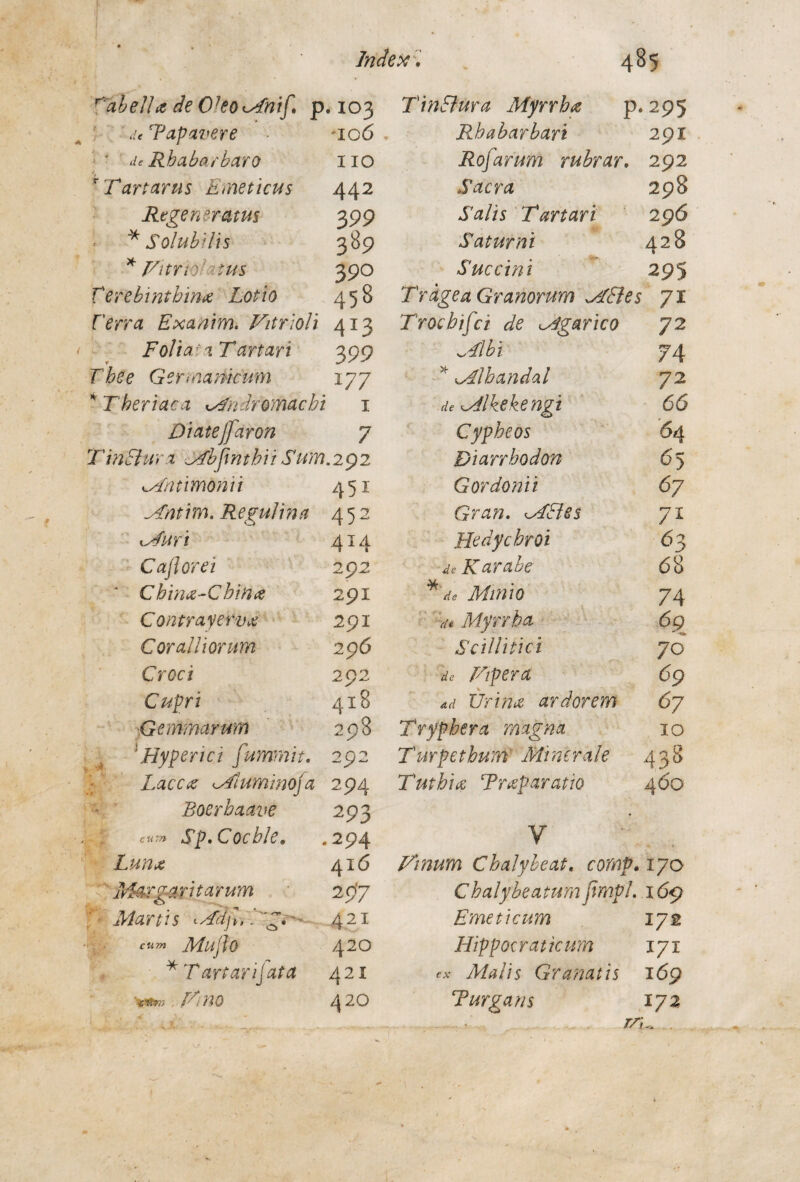 Index. 485
Tabellæ de Oleo Aniſ. p. 103
de Papavere 106
de Rhabarbaro 110
* Tartarus Emeticus 442
Regeneratus 399
* Solubilis 389
* Vitriolatus 390
Terebinthinæ Lotio 458
Terra Exanim. Vitrioli 413
Foliata Tartari 399
Thee Germanicum 177
* Theriaca Andromachi 1
Diateſſaron 7
Tinctura Abſinthii Sum. 292
Antimonii 451
Antim. Regulina 452
Auri 414
Caſtorei 292
Chinæ-Chinæ 291
Contrayervæ 291
Coralliorum 296
Croci 292
Cupri 418
Gemmarum 298
Hyperici ſummit. 292
Laccæ Aluminoſa 294
Boerhaave 293
cum Sp. Cochle. 294
Lunæ 416
Margaritarum 297
Martis 421
cum Muſto 420
* Tartariſata 421
cum Vino 420
Tinctura Myrrhæ p. 295
Rhabarbari 291
Roſarum rubrar. 292
Sacra 298
Salis Tartari 296
Saturni 428
Succini 295
Tragea Granorum Actes 71
Trochiſci de Agarico 72
Albi 74
* Alhandal 72
de Alkekengi 66
Cypheos 64
Diarrhodon 65
Gordonii 67
Gran. Actes 71
Hedychroi 63
de Karabe 68
* de Minio 74
de Myrrha 69
Scillitici 70
de Vipera 69
ad Urinæ ardorem 67
Tryphera magna 10
Turpethum Minerale 438
Tuthiæ Præparatio 460
V
Vinum Chalybeat. comp. 170
Chalybeatum ſimpl. 169
Emeticum 172
Hippocraticum 171
ex Malis Granatis 169
Purgans 172